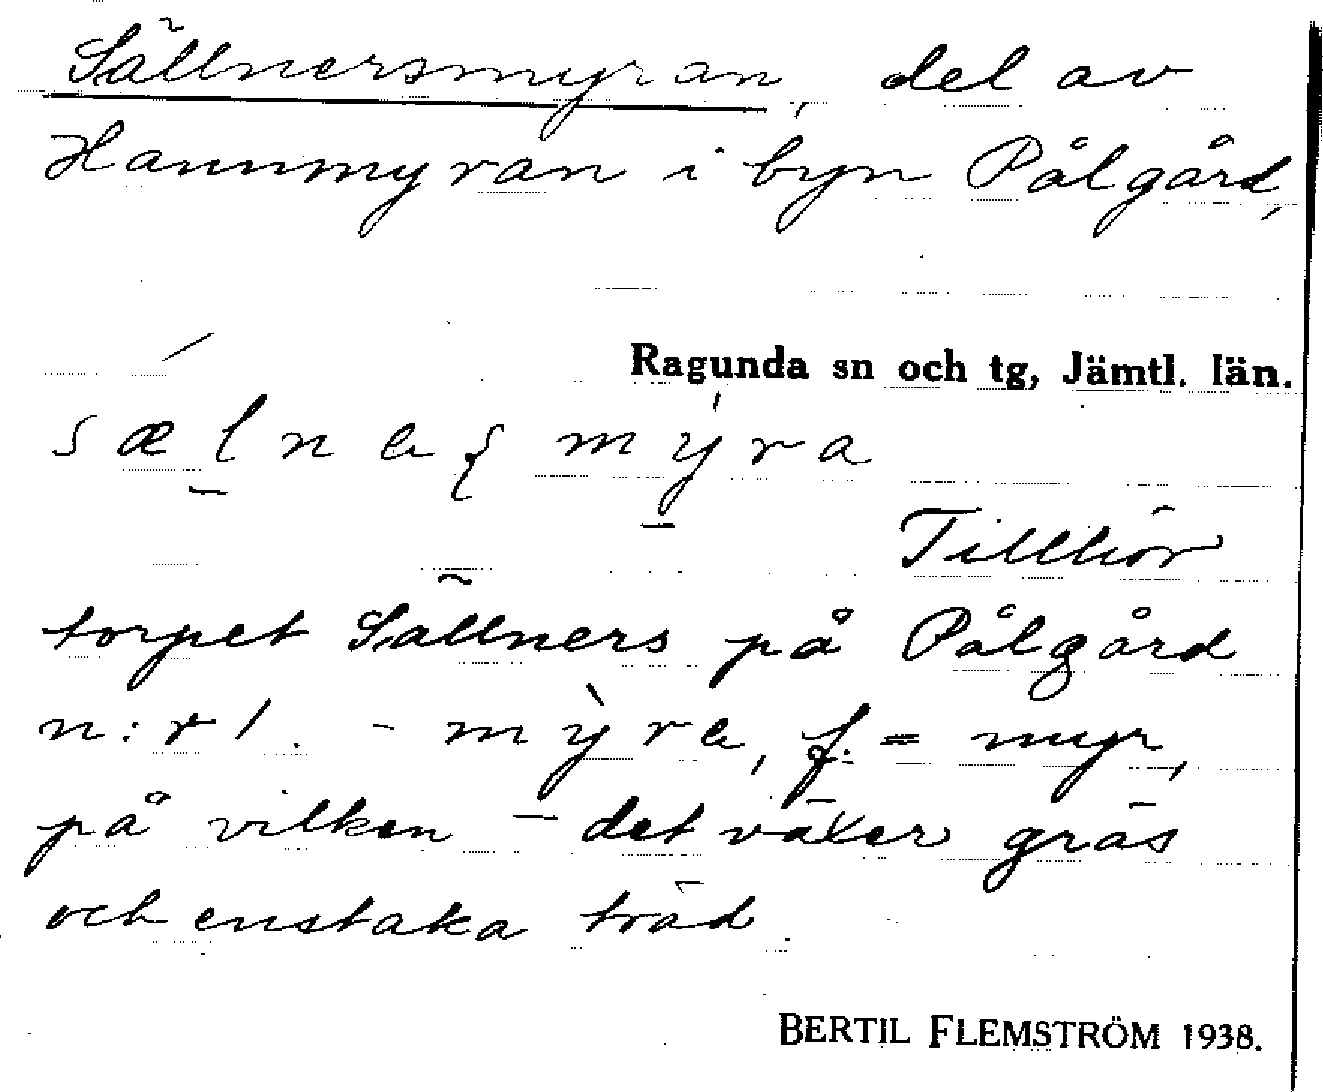 Sällnersmyran, del av
Hannmyran i byn Pålgård,
Ragunda sn och tg, Jämtl. län.
Tillhör
torpet Sällners på Pålgård
n:r 1. - mỳra, f. = myr,
på vilken - det växer gräs
och enstaka träd.
BERTIL FLEMSTRÖM 1938.